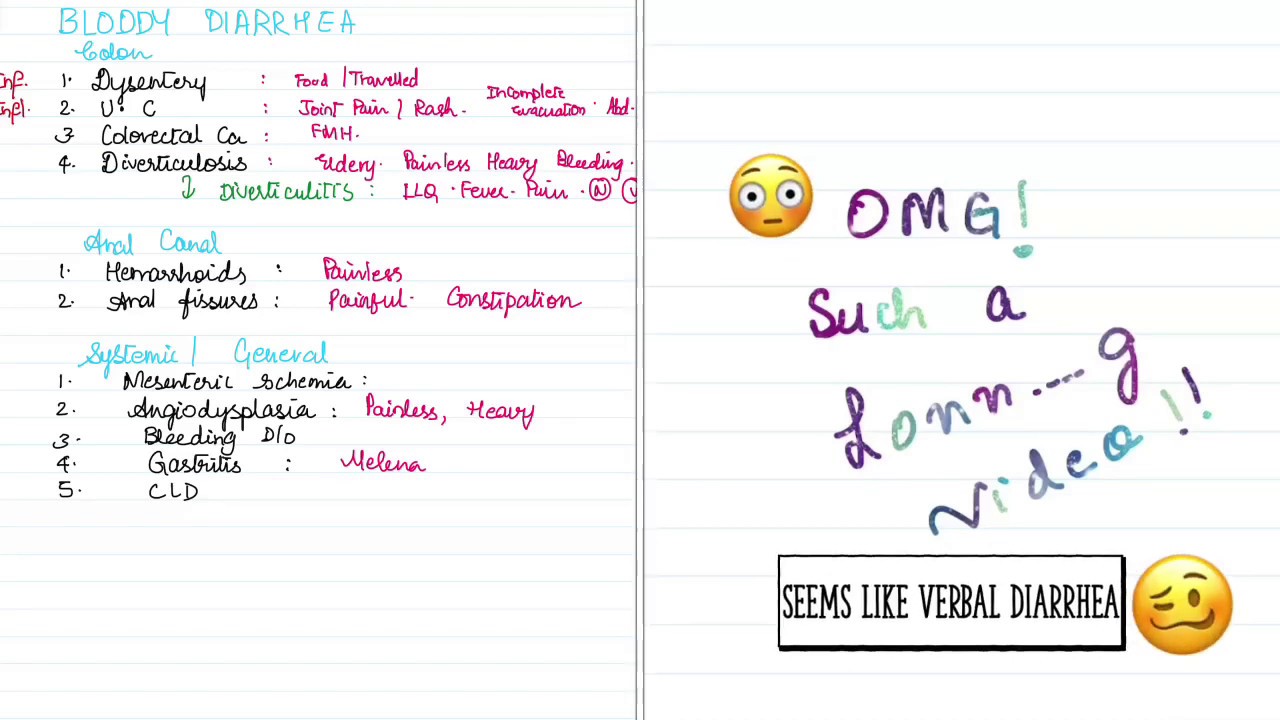 BLODDY DIARRHEA
Colon
Inf. 1. Dysentery : Food / Travelled
Infl. 2. U. C : Joint Pain / Rash. Incomplete Evacuation. Abd.
3 Colorectal Ca : FMH.
4. Diverticulosis : Eldery. Painless Heavy Bleeding.
↓ DIVERTICULITIS : LLQ. Fever. Pain. Ⓝ Ⓥ
Anal Canal
1. Hemarrhoids : Painless
2. Anal fissures : Painful. Constipation
Systemic / General
1. Mesenteric Ischemia :
2. Angiodysplasia : Painless, Heavy
3. Bleeding D/O
4. Gastritis : Melena
5. CLD
OMG!
Such a
Lonn----g
Video!!
SEEMS LIKE VERBAL DIARRHEA